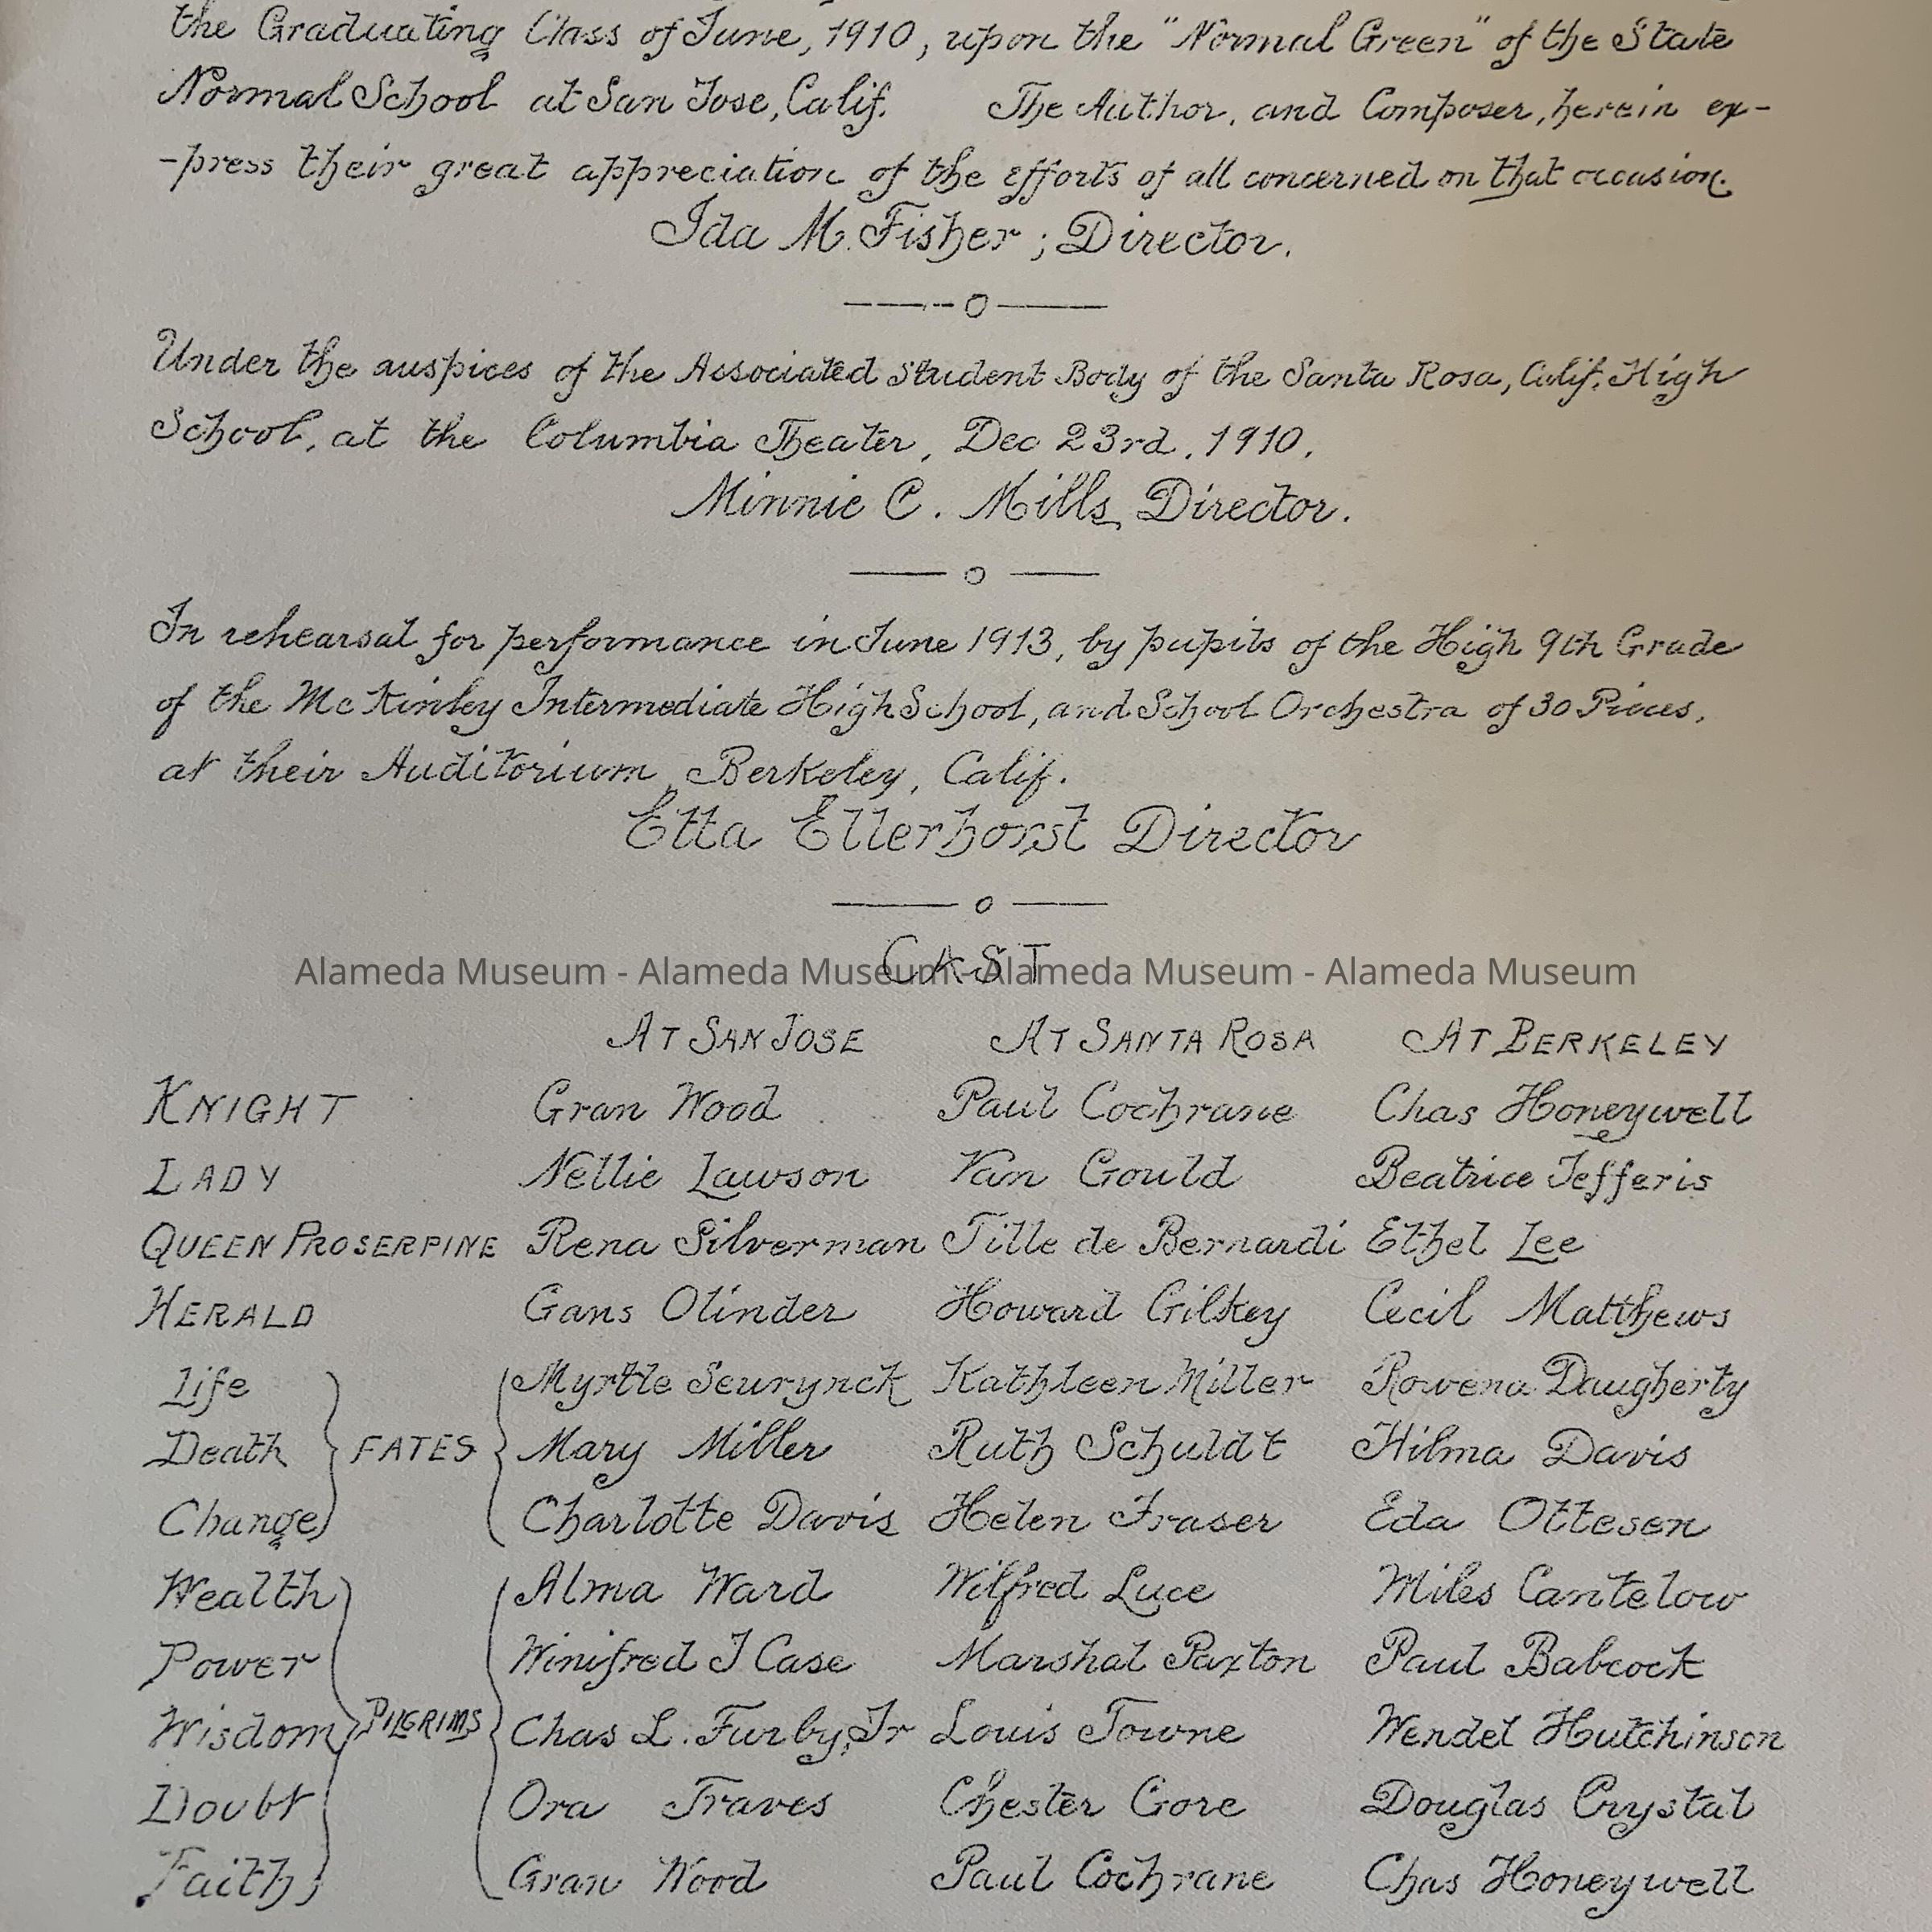 the Graduating Class of June, 1910, upon the "Normal Green" of the State
Normal School at San Jose, Calif. The Author, and Composer, herein ex-
-press their great appreciation of the efforts of all concerned on that occasion.
Ida M. Fisher ; Director.
Under the auspices of the Associated Student Body of the Santa Rosa, Calif. High
School, at the Columbia Theater, Dec 23rd, 1910.
Minnie C. Mills, Director.
In rehearsal for performance in June 1913, by pupils of the High 9th Grade
of the McKinley Intermediate High School, and School Orchestra of 30 Pieces,
at their Auditorium, Berkeley, Calif.
Etta Ellerhorst Director
CAST
Alameda Museum - Alameda Museum - Alameda Museum - Alameda Museum
AT SAN JOSE AT SANTA ROSA AT BERKELEY
KNIGHT Gran Wood Paul Cochrane Chas Honeywell
LADY Nellie Lawson Van Gould Beatrice Jefferis
QUEEN PROSERPINE Rena Silverman Tille de Bernardi Ethel Lee
HERALD Gans Olinder Howard Gilkey Cecil Matthews
Life Myrtle Seurynck Kathleen Miller Rowena Daugherty
Death FATES Mary Miller Ruth Schuldt Hilma Davis
Change Charlotte Davis Helen Fraser Eda Ottesen
Wealth Alma Ward Wilfred Luce Miles Cantelow
Power Winifred J Case Marshal Paxton Paul Babcock
Wisdom PILGRIMS Chas L. Furby, Jr Louis Towne Wendel Hutchinson
Doubt Ora Traves Chester Gore Douglas Crystal
Faith Gran Wood Paul Cochrane Chas Honeywell